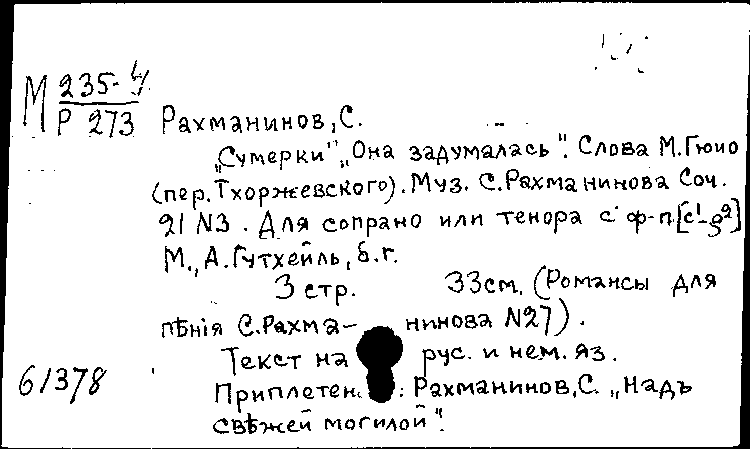 М 235-4
Р 273
Рахманинов, С.
„Сумерки" „Она задумалась". Слова М. Гюйо
(пер. Тхоржевского). Муз. С. Рахманинова Соч.
21 №3. Для сопрано или тенора с ф-п.
М., А. Гутхейль, б. г.
3 стр. 33 см. (Романсы для
пѣнія С. Рахма- нинова №27).
Текст на рус. и нем. яз.
61378
Приплетен. : Рахманинов, С. „Надъ
свѣжей могилой".